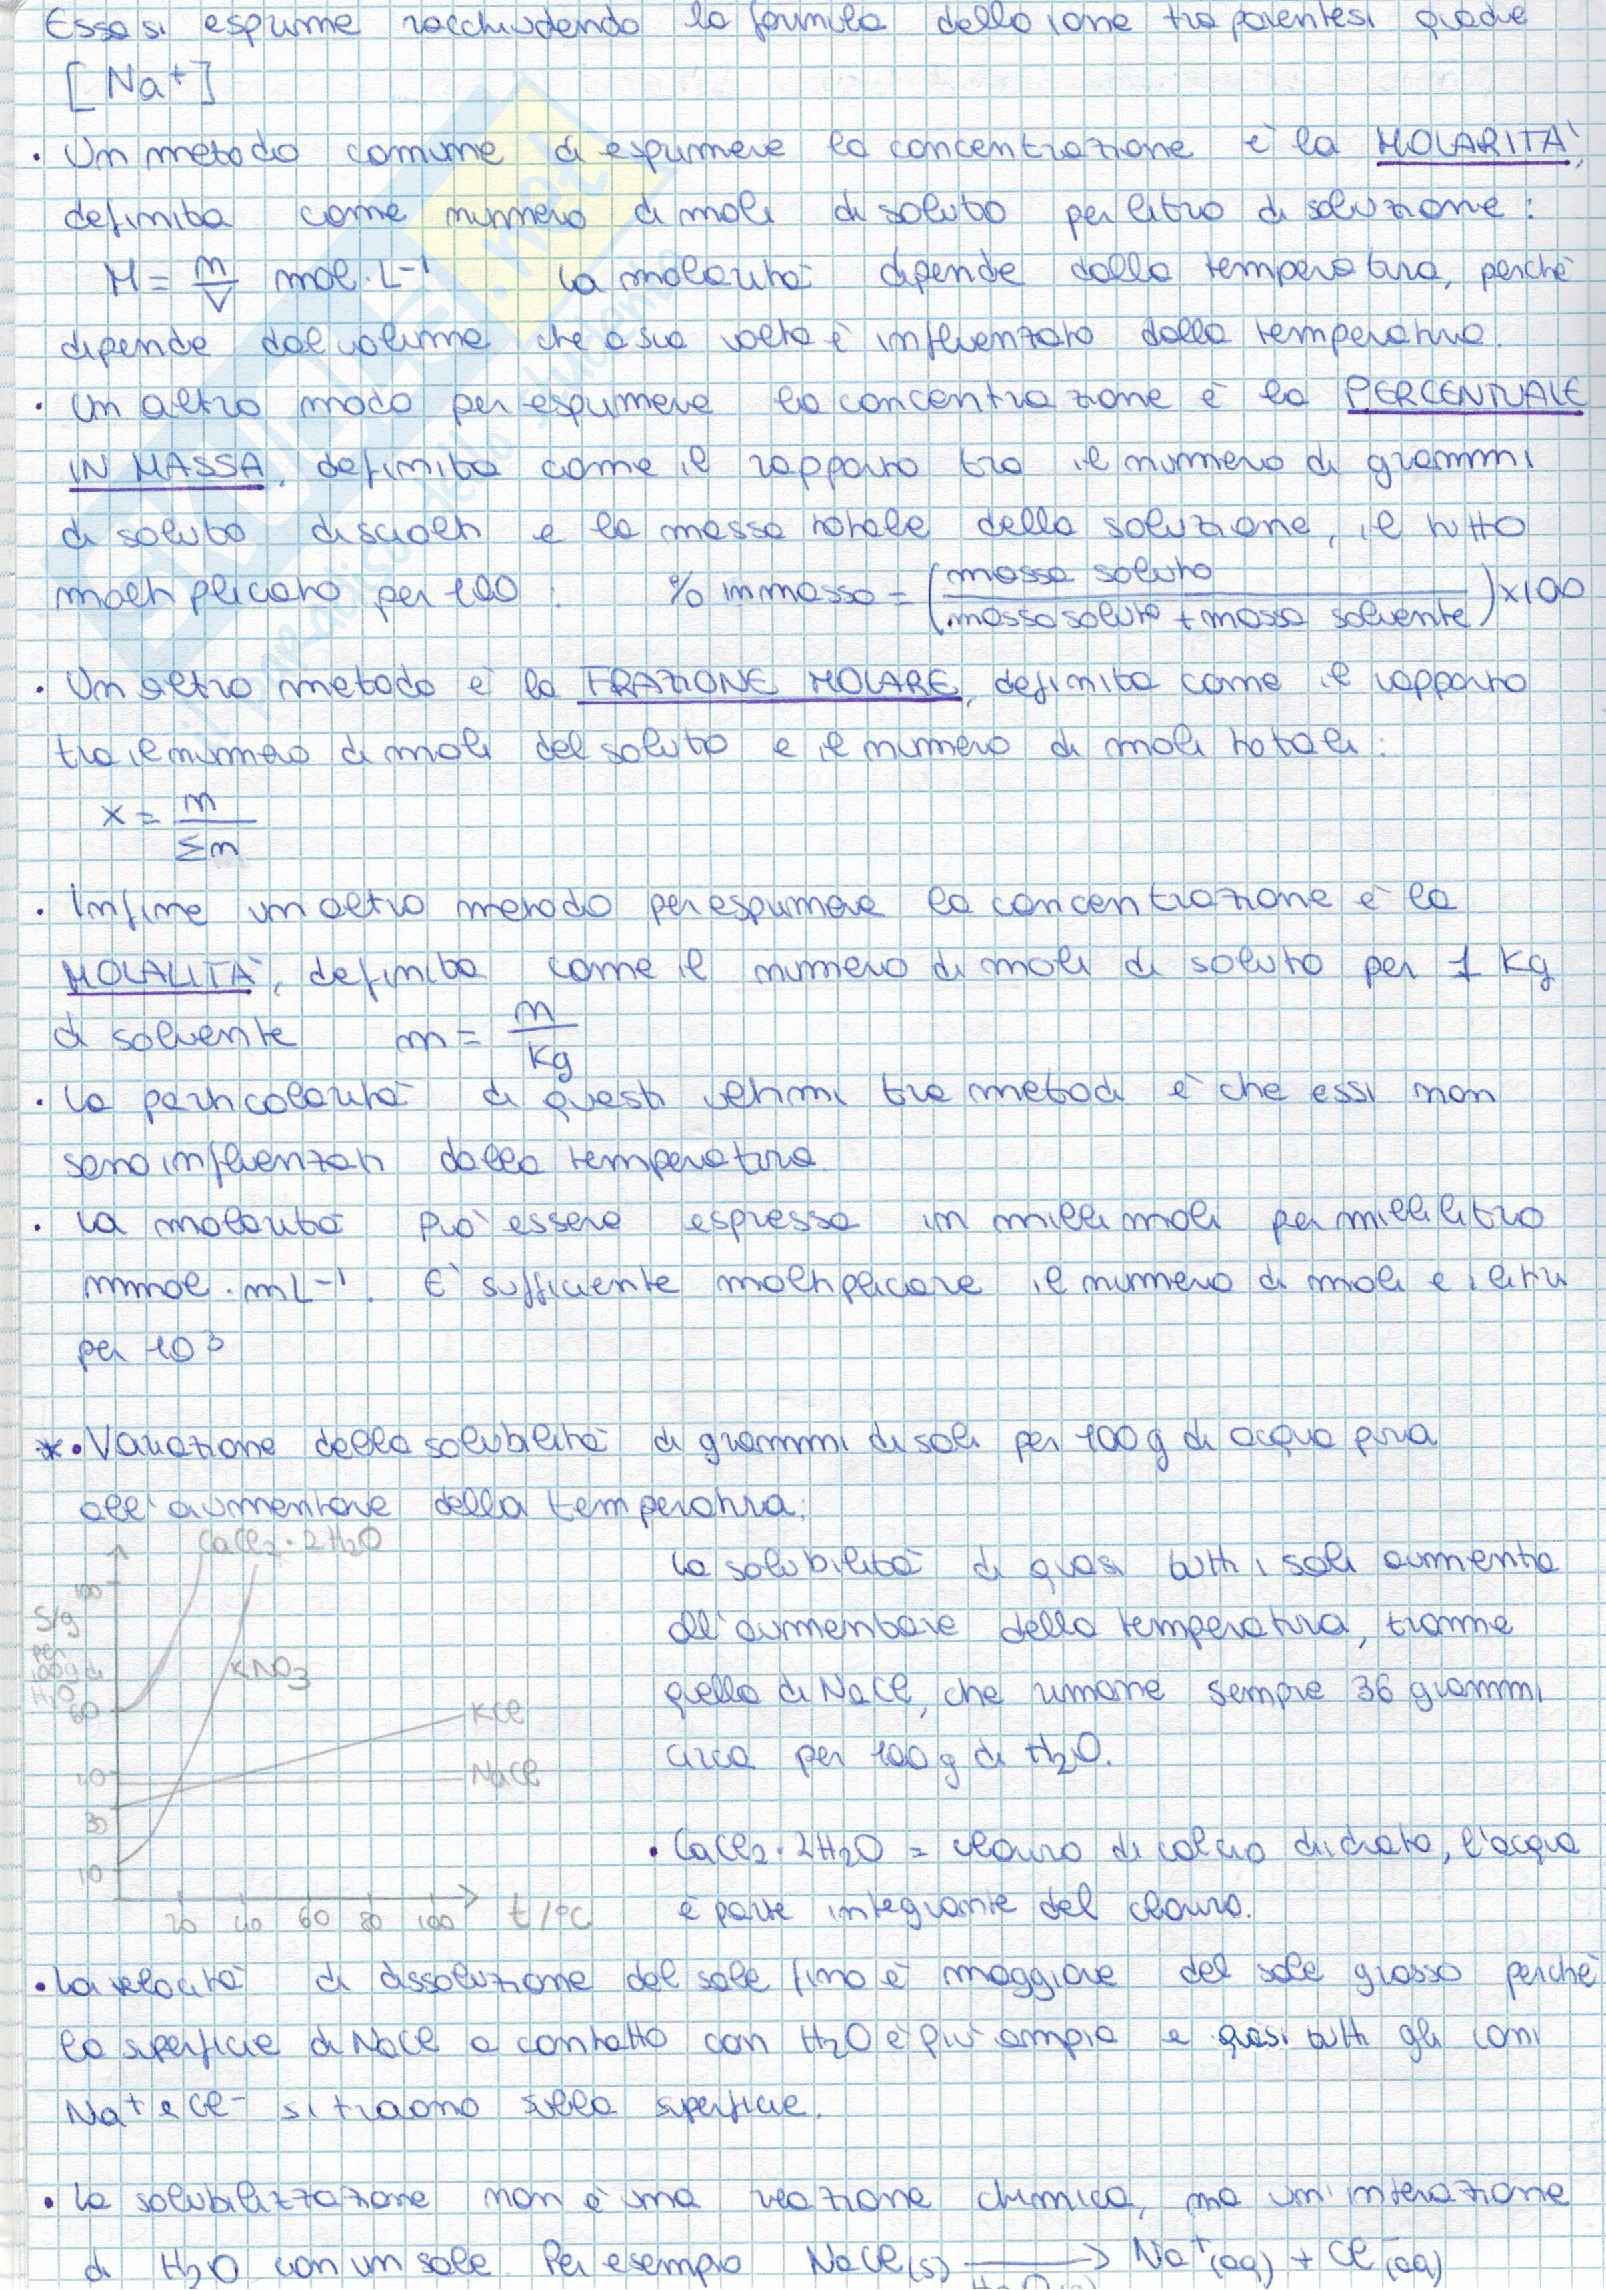 Essa si esprime racchiudendo la formula dello ione tra parentesi quadre
[Na⁺]
• Un metodo comune di esprimere la concentrazione è la MOLARITÀ,
definita come numero di moli di soluto per litro di soluzione:
M = n/V mol·L⁻¹ La molarità dipende dalla temperatura, perché
dipende dal volume che a sua volta è influenzato dalla temperatura.
• Un altro modo per esprimere la concentrazione è la PERCENTUALE
IN MASSA, definita come il rapporto tra il numero di grammi
di soluto disciolti e la massa totale della soluzione, il tutto
moltiplicato per 100: % in massa = (massa soluto / massa soluto + massa solvente) x100
• Un altro metodo è la FRAZIONE MOLARE, definita come il rapporto
tra il numero di moli del soluto e il numero di moli totali:
x = n/Σn
• Infine un altro metodo per esprimere la concentrazione è la
MOLALITÀ, definita come il numero di moli di soluto per 1 Kg
di solvente m = n/Kg
• La particolarità di questi ultimi tre metodi è che essi non
sono influenzati dalla temperatura
• La molarità può essere espressa in millimoli per millilitro
mmol·mL⁻¹. È sufficiente moltiplicare il numero di moli e i litri
per 10³
*• Variazione della solubilità di grammi di sali per 100g di acqua pura
all'aumentare della temperatura:
CaCl₂·2H₂O
100
S/g
per
100g di
H₂O
60
KNO₃
KCl
40
NaCl
30
10
20 40 60 80 100 t/°C
La solubilità di quasi tutti i sali aumenta
all'aumentare della temperatura, tranne
quella di NaCl, che rimane sempre 36 grammi
circa per 100g di H₂O.
• CaCl₂·2H₂O = cloruro di calcio diidrato, l'acqua
è parte integrante del cloruro.
• La velocità di dissoluzione del sale fino è maggiore del sale grosso perché
la superficie di NaCl a contatto con H₂O è più ampia e quasi tutti gli ioni
Na⁺ e Cl⁻ si trovano sulla superficie.
• La solubilizzazione non è una reazione chimica, ma un'interazione
di H₂O con un sale. Per esempio NaCl(s) ⟶ Na⁺(aq) + Cl⁻(aq)